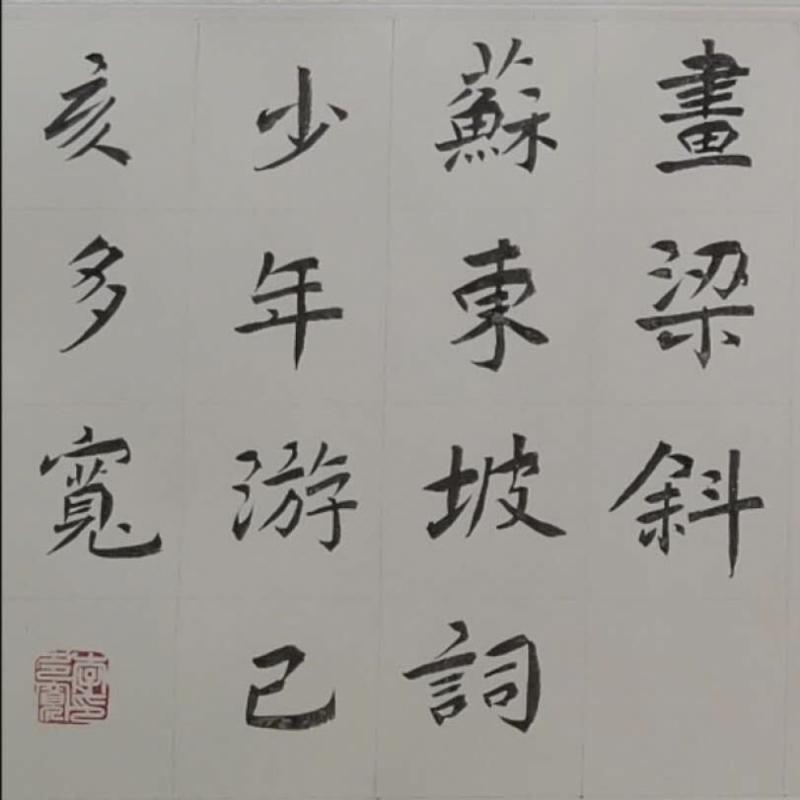 畫梁斜
蘇東坡詞
少年游己
亥多寬